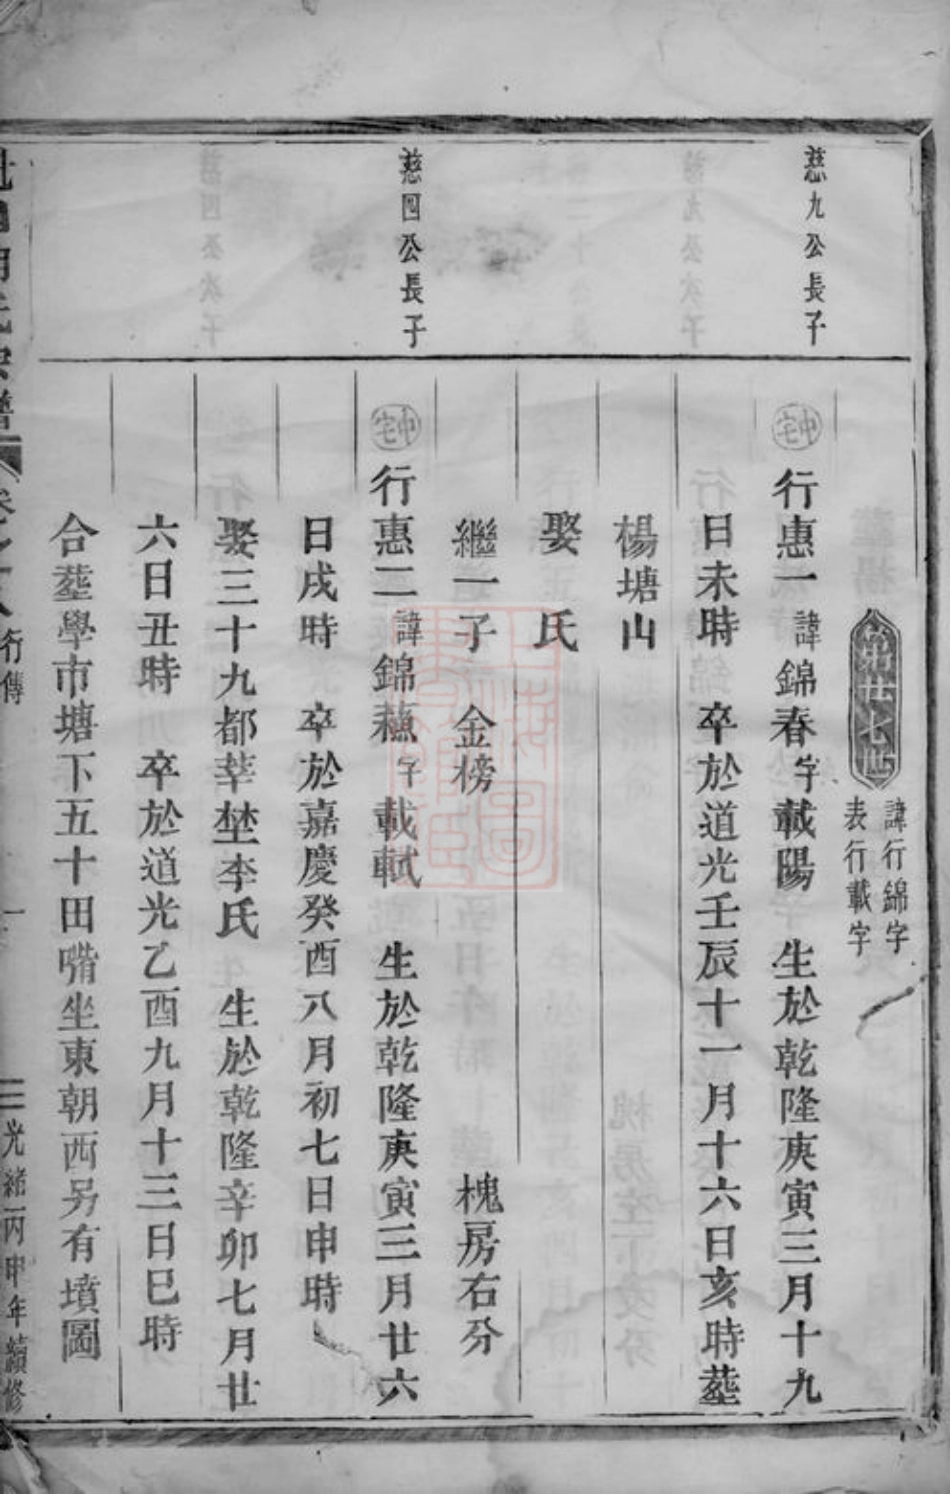 第廿七世
諱行錦字
表行載字
慈九公長子
中宅
行惠一諱錦春字載陽 生於乾隆庚寅三月十九
日未時 卒於道光壬辰十一月十六日亥時塟
楊塘山
娶氏
繼一子 金榜 槐房右分
慈四公長子
中宅
行惠二諱錦蘓字載軾 生於乾隆庚寅三月廿六
日戌時 卒於嘉慶癸酉八月初七日申時
娶三十九都莘埜李氏 生於乾隆辛卯七月廿
六日丑時 卒於道光乙酉九月十三日巳時
合塟學市塘下五十田嘴坐東朝西另有墳圖
氏宗譜
行傳
一
光緒丙申年續修